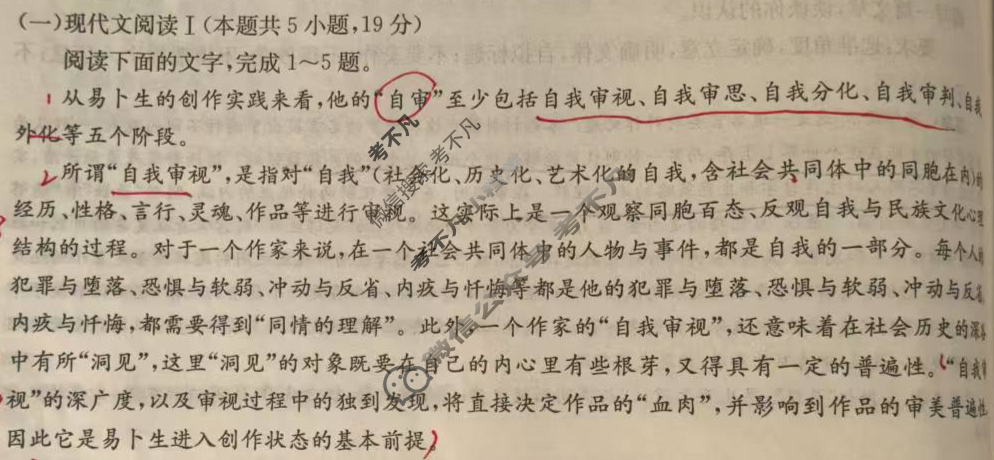 (一)现代文阅读Ⅰ(本题共5小题,19分)
阅读下面的文字,完成1~5题。
1 从易卜生的创作实践来看,他的“自审”至少包括自我审视、自我审思、自我分化、自我审判、自我
外化等五个阶段。
2 所谓“自我审视”,是指对“自我”(社会化、历史化、艺术化的自我,含社会共同体中的同胞在内)的
经历、性格、言行、灵魂、作品等进行审视。这实际上是一个观察同胞百态、反观自我与民族文化心理
结构的过程。对于一个作家来说,在一个社会共同体中的人物与事件,都是自我的一部分。每个人的
犯罪与堕落、恐惧与软弱、冲动与反省、内疚与忏悔等都是他的犯罪与堕落、恐惧与软弱、冲动与反省、
内疚与忏悔,都需要得到“同情的理解”。此外,一个作家的“自我审视”,还意味着在社会历史的深
中有所“洞见”,这里“洞见”的对象既要在自己的内心里有些根芽,又得具有一定的普遍性。“自我审
视”的深广度,以及审视过程中的独到发现,将直接决定作品的“血肉”,并影响到作品的审美普遍性
因此它是易卜生进入创作状态的基本前提。
考不凡
微信搜索考不凡
考不凡
微信公众号 考不凡